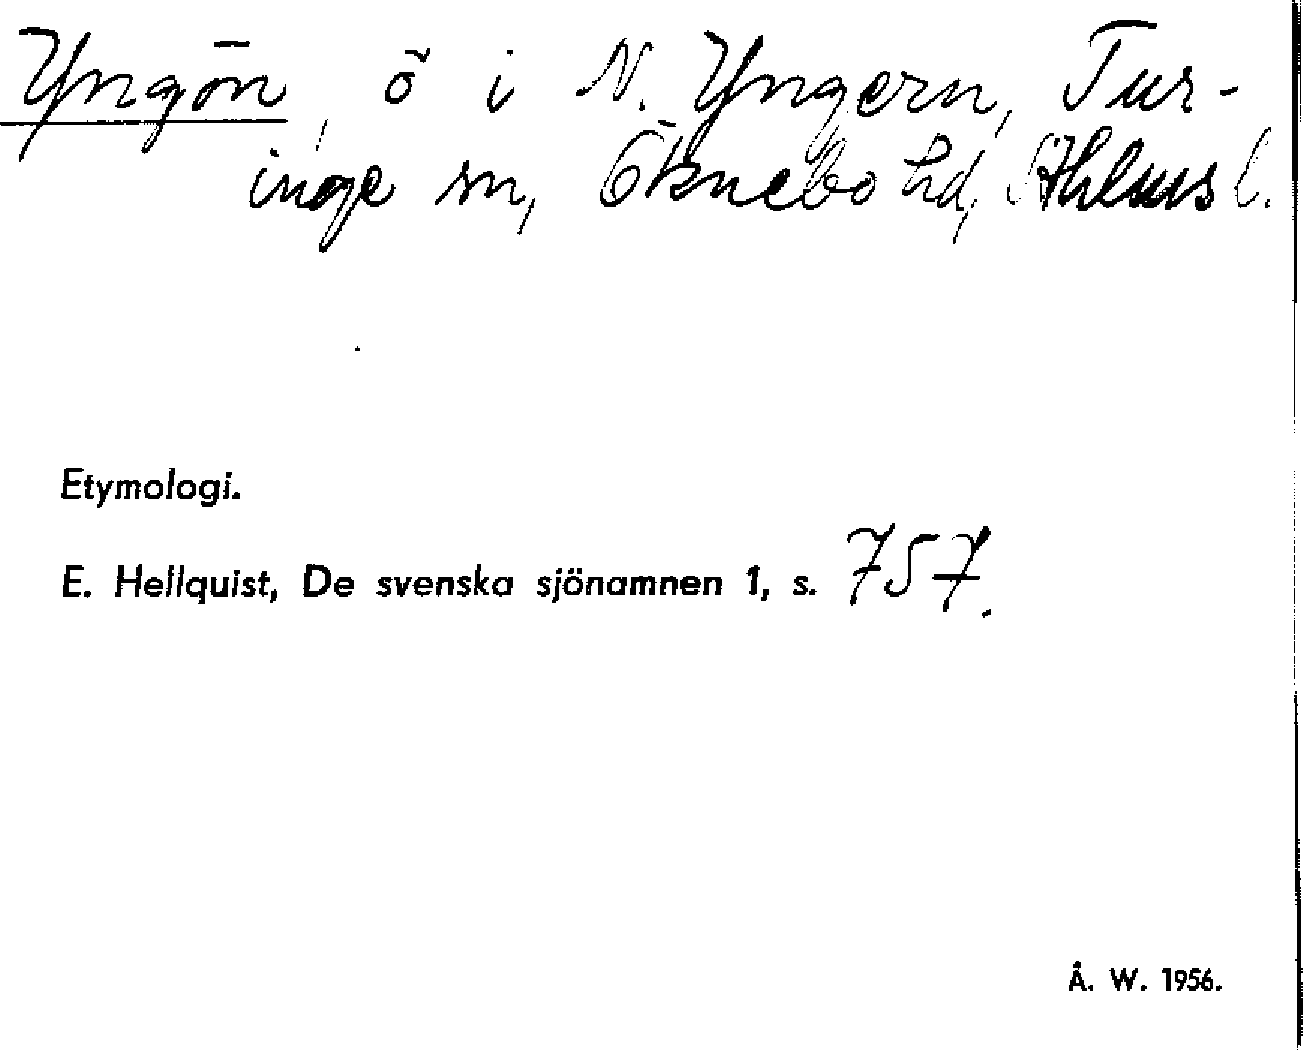 Yngön, ö i N. Yngern, Tur-
inge sn, Öknebo hd, Sthlms l.
Etymologi.
E. Hellquist, De svenska sjönamnen 1, s. 757.
Å. W. 1956.